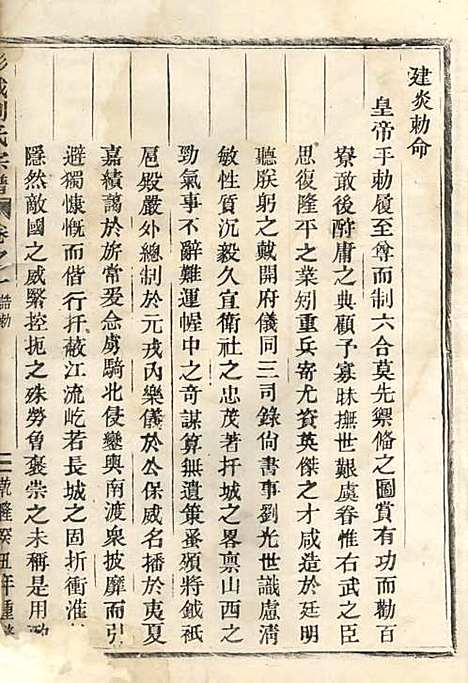 建炎勅命
皇帝手勅履至尊而制六合莫先禦偹之圖賞有功而勸百
寮敢後酧庸之典顧予寡昧撫世艱虞眷惟右武之臣
思復隆平之業矧重兵寄尤資英傑之才咸造於廷明
聽朕躬之戴開府儀同三司錄尚書事劉光世識慮淸
敏性質沉毅久宜衛社之忠茂著扞城之畧禀山西之
勁氣事不辭難運幄中之奇謀算無遺策蚤頒將鉞祇
扈殿嚴外總制於元戎內樂儀於公保威名播於夷夏
嘉績藹於旂常爰念虜騎北侵鑾輿南渡衆披靡而引
避獨慷慨而偕行扞蔽江流屹若長城之固折衝淮
隱然敵國之威緊控扼之殊勞魯褒崇之未稱是用
城劉氏宗譜 卷之一 誥勅 二 乾隆癸丑年重